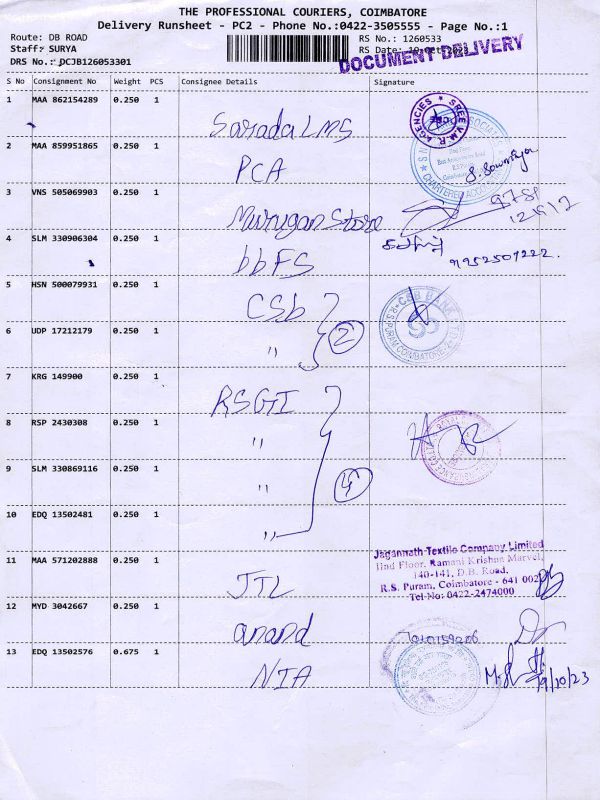 THE PROFESSIONAL COURIERS, COIMBATORE
Delivery Runsheet - PC2 - Phone No.:0422-3505555 - Page No.:1
Route: DB ROAD
RS No.: 1260533
Staff: SURYA
RS Date:
DRS No.: DCJB126053301
DOCUMENT DELIVERY
S No Consignment No Weight PCS Consignee Details Signature
1 MAA 862154289 0.250 1 Sarada LMS
2 MAA 859951865 0.250 1 PCA
3 VNS 505069903 0.250 1 Murugan Store
4 SLM 330906304 0.250 1 bbFS
9952507222.
5 HSN 500079931 0.250 1 CSb
CSB BANK
R.S.PURAM COIMBATORE
6 UDP 17212179 0.250 1 " 2
7 KRG 149900 0.250 1 RSGI
8 RSP 2430308 0.250 1 "
9 SLM 330869116 0.250 1 " 4
10 EDQ 13502481 0.250 1 "
Jagannath Textile Company Limited
IInd Floor, Ramani Krishna Marvel,
140-141, D.B. Road,
R.S. Puram, Coimbatore - 641 002
Tel No: 0422-2474000
11 MAA 571202888 0.250 1 JTL
12 MYD 3042667 0.250 1 anand
13 EDQ 13502576 0.675 1 NIA
19/10/23